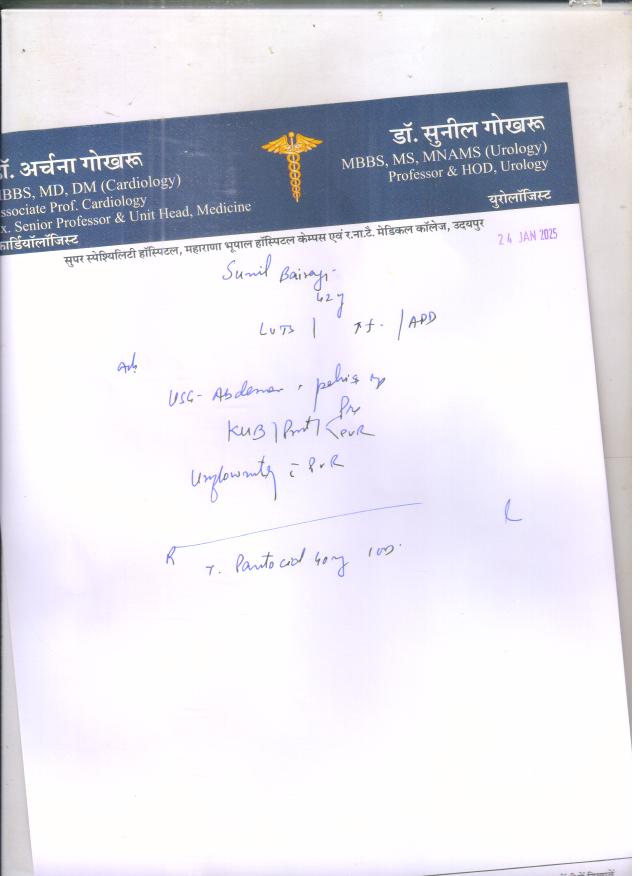 ॉ. अर्चना गोखरू
MBBS, MD, DM (Cardiology)
Associate Prof. Cardiology
x. Senior Professor & Unit Head, Medicine
कार्डियॉलॉजिस्ट
डॉ. सुनील गोखरू
MBBS, MS, MNAMS (Urology)
Professor & HOD, Urology
युरोलॉजिस्ट
सुपर स्पेश्यिलिटी हॉस्पिटल, महाराणा भूपाल हॉस्पिटल केम्पस एवं र.ना.टै. मेडिकल कॉलेज, उदयपुर
24 JAN 2025
Sunil
42 y
LUTS | / APD
USG - Abdomen
KUB /
PVR
Uroflowmetry c̄ PVR
R
T. Pantocid 40mg 1OD